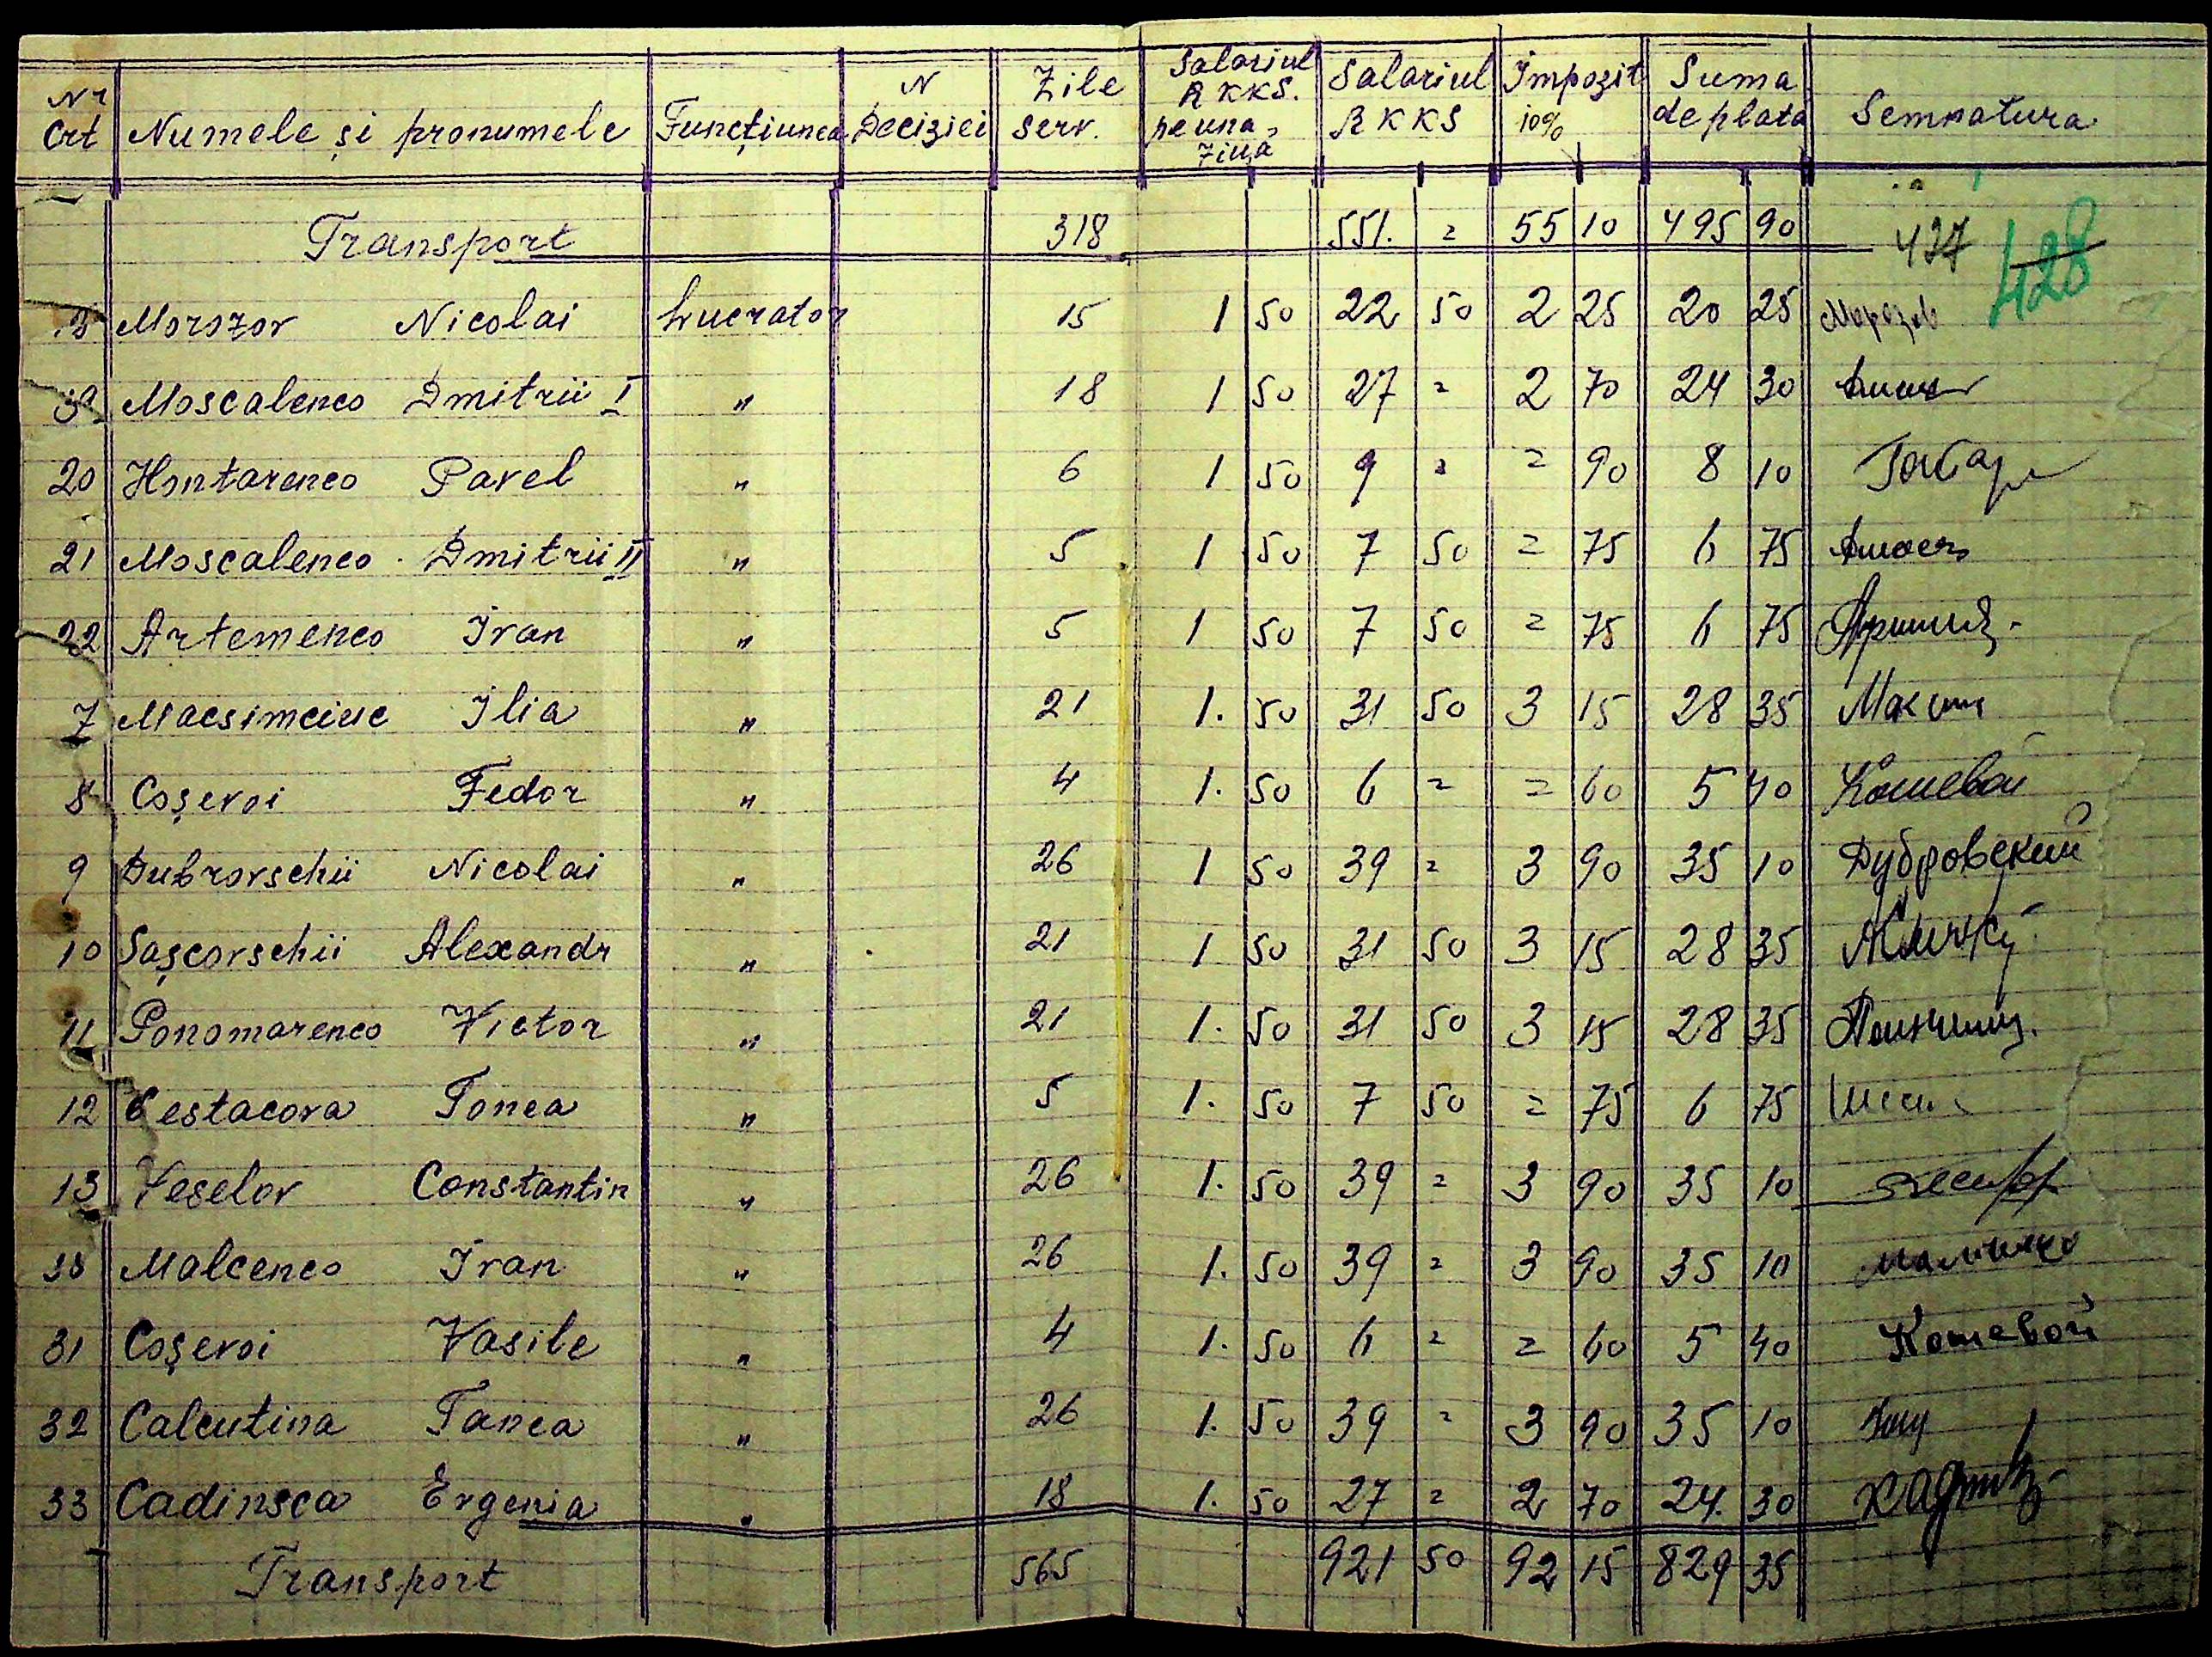 Nr Crt Numele și pronumele Funcțiunea N Deciziei Zile serv. Salariul RKKS. pe una ziua Salariul RKKS Impozit 10% Suma de plata Semnatura
Transport 318 551. = 55 10 495 90 427 428
Morozov Nicolai Lucrator 15 1 50 22 50 2 25 20 25 Морозов
Moscalenco Dmitrii I " 18 1 50 27 = 2 70 24 30
20 Hontarenco Pavel " 6 1 50 9 = = 90 8 10
21 Moscalenco Dmitrii II " 5 1 50 7 50 = 75 6 75
22 Artemenco Ivan " 5 1 50 7 50 = 75 6 75
7 Macsimciuc Ilia " 21 1. 50 31 50 3 15 28 35
8 Coșevoi Fedor " 4 1. 50 6 = = 60 5 40 Кошевой
9 Dubrovschii Nicolai " 26 1 50 39 = 3 90 35 10 Дубровский
10 Sașcovschii Alexandr " 21 1 50 31 50 3 15 28 35
11 Ponomarenco Victor " 21 1. 50 31 50 3 15 28 35
12 Șestacova Tonea " 5 1. 50 7 50 = 75 6 75
13 Veselov Constantin " 26 1. 50 39 = 3 90 35 10
Malcenco Ivan " 26 1. 50 39 = 3 90 35 10
31 Coșevoi Vasile " 4 1. 50 6 = = 60 5 40 Кошевой
32 Calcutina Tanea " 26 1. 50 39 = 3 90 35 10
33 Cadinsca Evgenia " 18 1. 50 27 = 2 70 24. 30
Transport 565 921 50 92 15 829 35